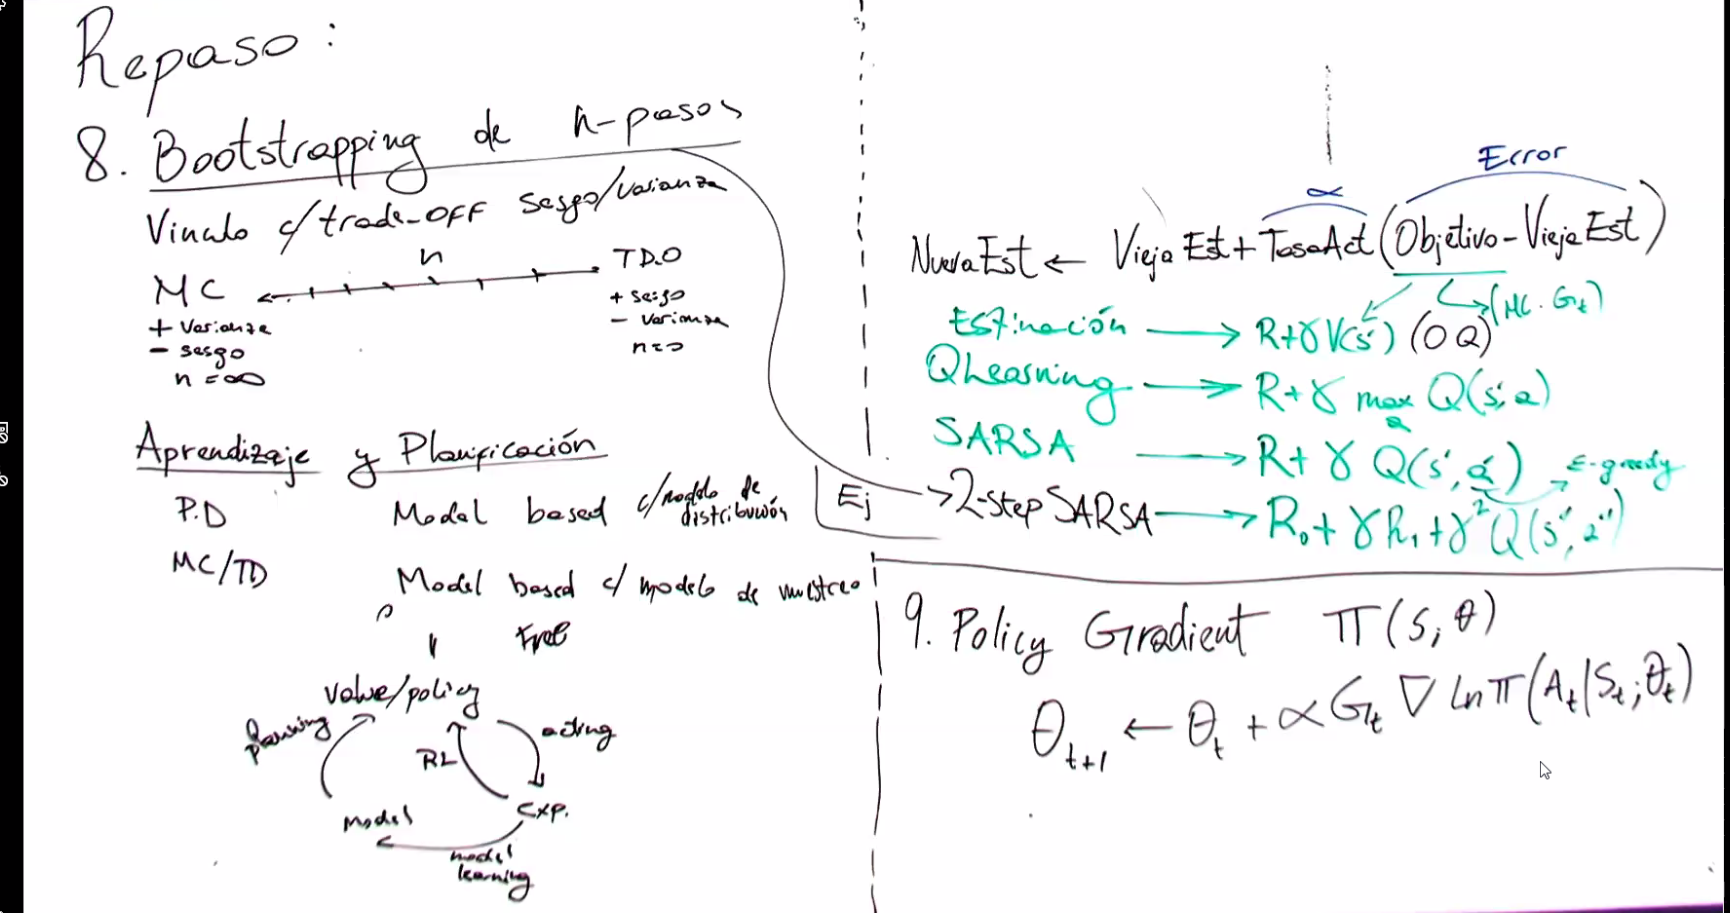 Repaso:
8. Bootstrapping de n-pasos
Vinculo c/trade-OFF sesgo/varianza
n
MC
TD.0
+ varianza
- sesgo
n = ∞
+ sesgo
- varianza
n=0
Aprendizaje y Planificación
P.D
Model based c/modelo de distribución
MC/TD
Model based c/ modelo de muestreo
o
free
value/policy
planning
acting
RL
Model
exp.
model learning
α
Error
NuevaEst ← ViejaEst + TasaAct (Objetivo - ViejaEst)
(MC. Gt)
Estimación → R+γV(s') (O Q)
QLearning → R+γ max Q(s',a)
a
SARSA → R+γ Q(s',a') → ε-greedy
Ej → 2-step SARSA → R₀+γR₁+γ²Q(s'',a'')
9. Policy Gradient π(s,θ)
θt+1 ← θt + α Gt ∇ ln π(At|St;θt)